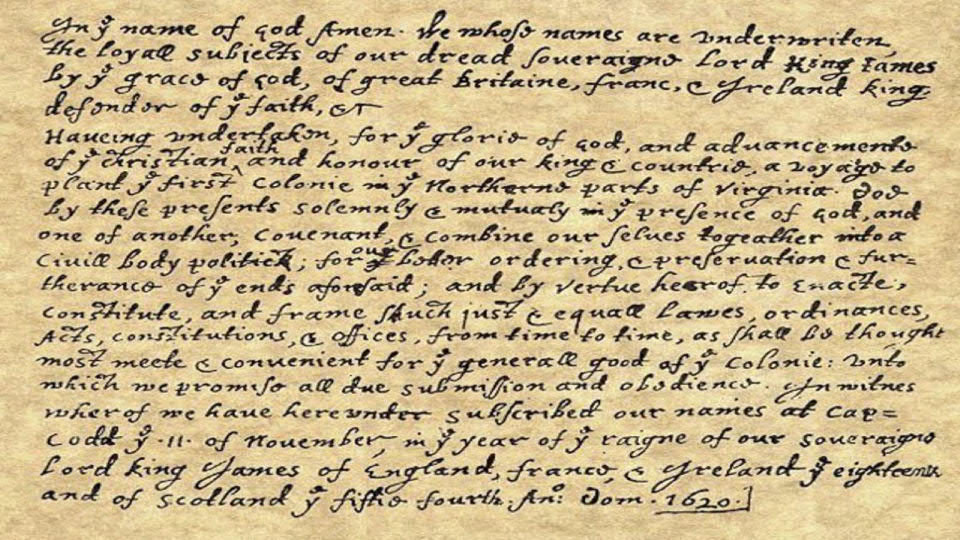 In yͤ name of god Amen· We whose names are vnderwriten,
the loyall subjects of our dread soueraigne Lord King Iames
by yͤ grace of god, of great Britaine, franc, & Ireland king,
defender of yͤ faith, &c
Haueing vndertaken, for yͤ glorie of god, and aduancemente
of yͤ christian ^faith and honour of our king & countrie, a voyage to
plant yͤ first colonie in yͤ Northerne parts of Virginia· Doe
by these presents solemnly & mutualy in yͤ presence of god, and
one of another, couenant, & combine our selues togeather into a
Ciuill body politick; for our better ordering, & preseruation & fur=
therance of yͤ ends aforesaid; and by vertue hearof, to Enacte,
constitute, and frame shuch just & equall Lawes, ordinances,
Acts, constitutions, & offices, from time to time, as shall be thought
most meete & conuenient for yͤ generall good of yͤ Colonie: vnto
which we promise all due submission and obedience. In witnes
wherof we haue herevnder subscribed our names at Cap=
Codd yͤ ·11· of Nouember, in yͤ year of yͤ raigne of our soueraigne
Lord king James of England, france, & Ireland yͤ eighteenth
and of Scotland yͤ fiftie fourth. Anͦ: Dom. 1620·]